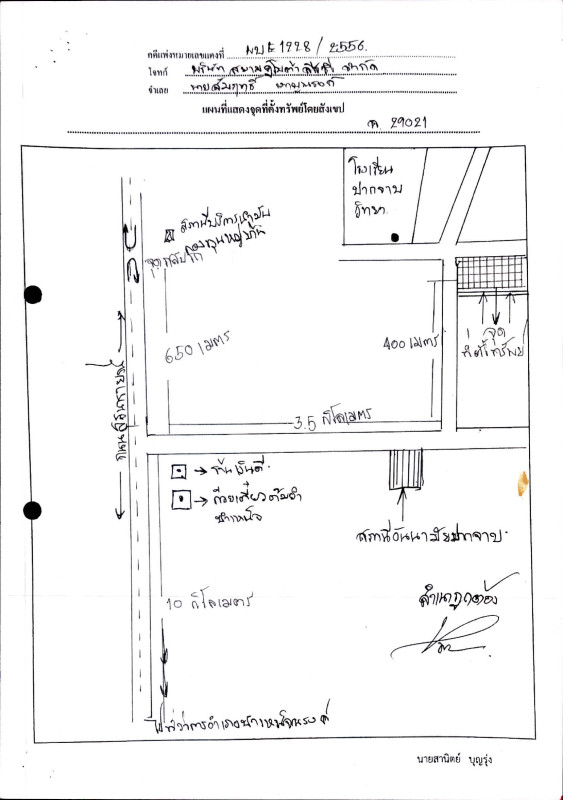 คดีแพ่งหมายเลขแดงที่ ผบE1228/2556.
โจทก์ บริษัท สยาม จำกัด
จำเลย นายสัมฤทธิ์
แผนที่แสดงจุดที่ตั้งทรัพย์โดยสังเขป
ค 29021
โรงเรียน
ปากจาบ
วิทยา
สถานีบริการน้ำมัน
จุดกลับรถ
650 เมตร
400 เมตร
จุด
ที่ตั้งทรัพย์
ถนนสุรนารายณ์
3.5 กิโลเมตร
ก๋วยเตี๋ยวต้มยำ
สถานีอนามัยปากจาบ
10 กิโลเมตร
สำเนาถูกต้อง
ไปที่ว่าการอำเภอบำเหน็จณรงค์
นายสานิตย์ บุญรุ่ง